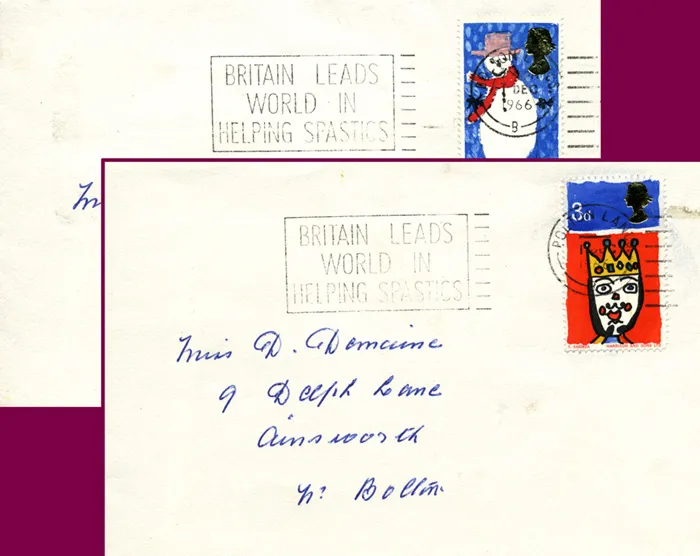 BRITAIN LEADS
WORLD IN
HELPING SPASTICS
DEC
966
B
BRITAIN LEADS
WORLD IN
HELPING SPASTICS
3d
HARRISON AND SONS LTD
Miss D. Domaine
9 Delph Lane
Ainsworth
Nr Bolton